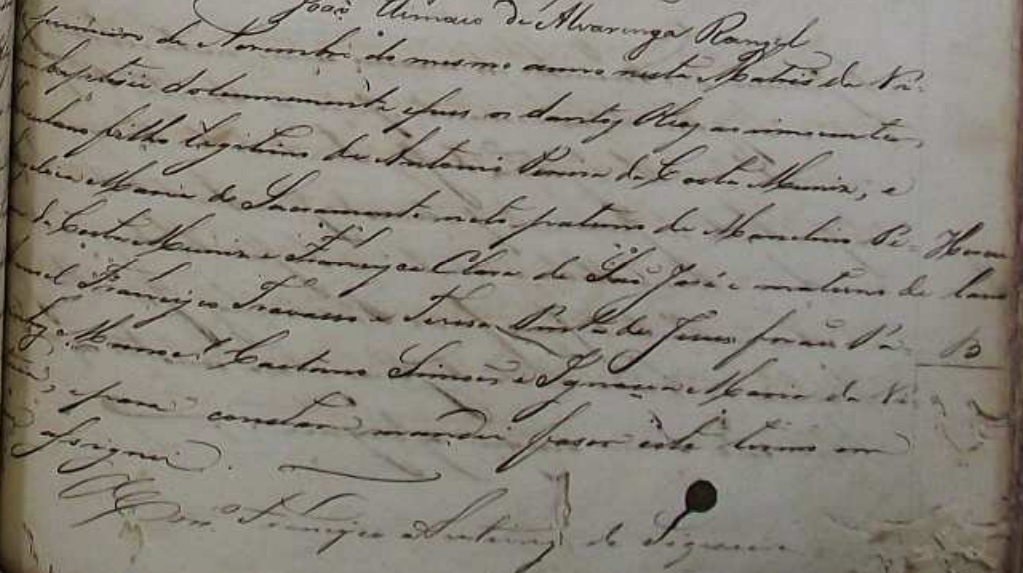 João Urmaio de Alvarenga Rangel
primeiro de Novembro do mesmo anno nesta Matris da Vi-
baptisei solemnemente e pus os Santos Oleos ao innocente
filho legitimo de Antonio Pereira da Costa Muniz, e
Maria do Sacramento neto paterno de Marcelino Pe-
da Costa Muniz e Francisca Clara de São José e materno de
Francisco Travassos e Teresa Pinta de Jesus forão Pa-
Manoel Caetano Simões e Ignacia Maria da Vi-
e para constar mandei fazer este termo em
assignei.
O Con.º Francisco Antonio de Siqueira
Horacu
lano
B